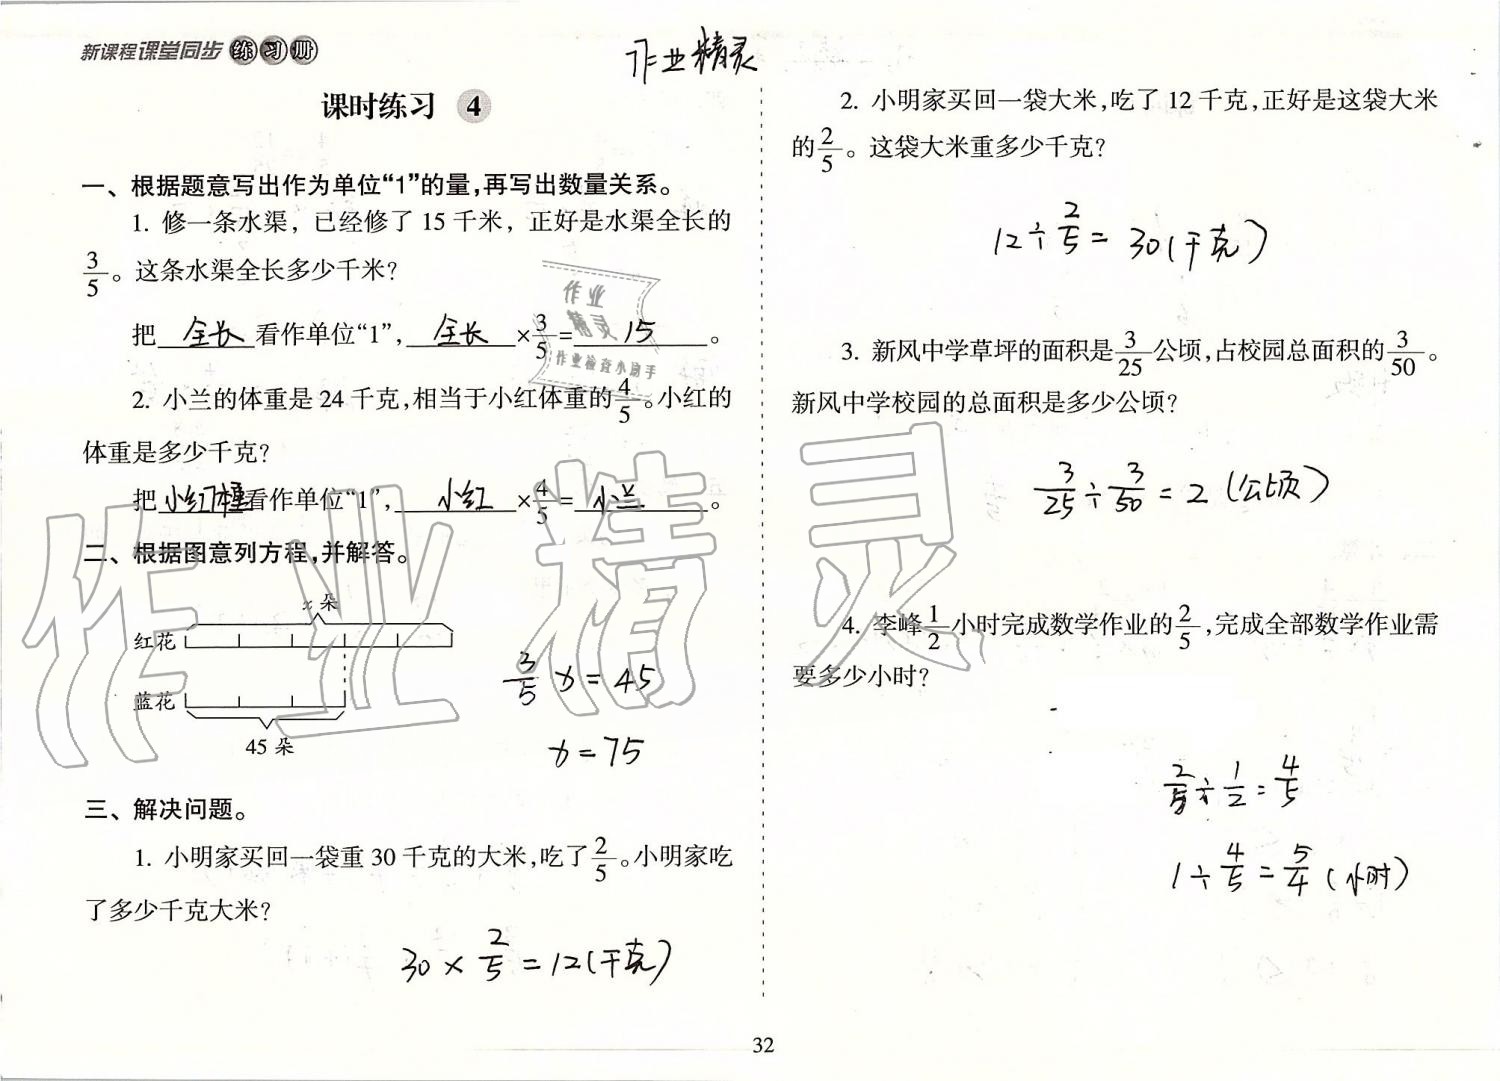 新课程课堂同步练习册
作业精灵
课时练习 4
一、根据题意写出作为单位“1”的量,再写出数量关系。
1. 修一条水渠，已经修了 15 千米，正好是水渠全长的
3/5。这条水渠全长多少千米?
把 全长 看作单位“1”, 全长 ×3/5= 15 。
2. 小兰的体重是 24 千克,相当于小红体重的4/5。小红的
体重是多少千克?
把 小红体重 看作单位“1”, 小红 ×4/5= 小兰 。
二、根据图意列方程,并解答。
x 朵
红花
蓝花
45 朵
3/5 x = 45
x = 75
三、解决问题。
1. 小明家买回一袋重 30 千克的大米,吃了2/5。小明家吃
了多少千克大米?
30 × 2/5 = 12(千克)
2. 小明家买回一袋大米,吃了 12 千克,正好是这袋大米
的2/5。这袋大米重多少千克?
12÷2/5= 30(千克)
3. 新风中学草坪的面积是3/25公顷,占校园总面积的3/50。
新风中学校园的总面积是多少公顷?
3/25÷3/50=2(公顷)
4. 李峰1/2小时完成数学作业的2/5,完成全部数学作业需
要多少小时?
2/5÷1/2=4/5
1÷4/5=5/4(小时)
作业
精灵
作业检查小助手
作业精灵
32